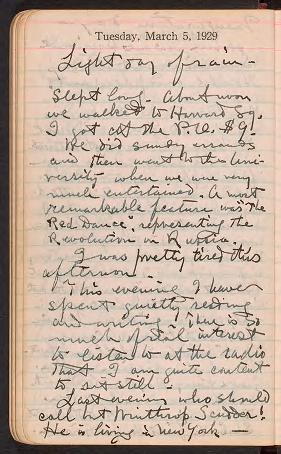 Tuesday, March 5, 1929
Light day of rain -
Slept long. About noon
we walked to Harvard Sq.
I got at the P.O. $9!
We did sundry errands
and then went to the Uni-
versity when we were very
much entertained. A most
remarkable feature was "The
Red Dance", representing the
Revolution in Russia.
I was pretty tired this
afternoon.
This evening I have
spent quietly reading
and writing. There is so
much of vital interest
to listen to at the radio
that I am quite content
to sit still -
Last evening who should
call but Winthrop Scudder!
He is living in New York -